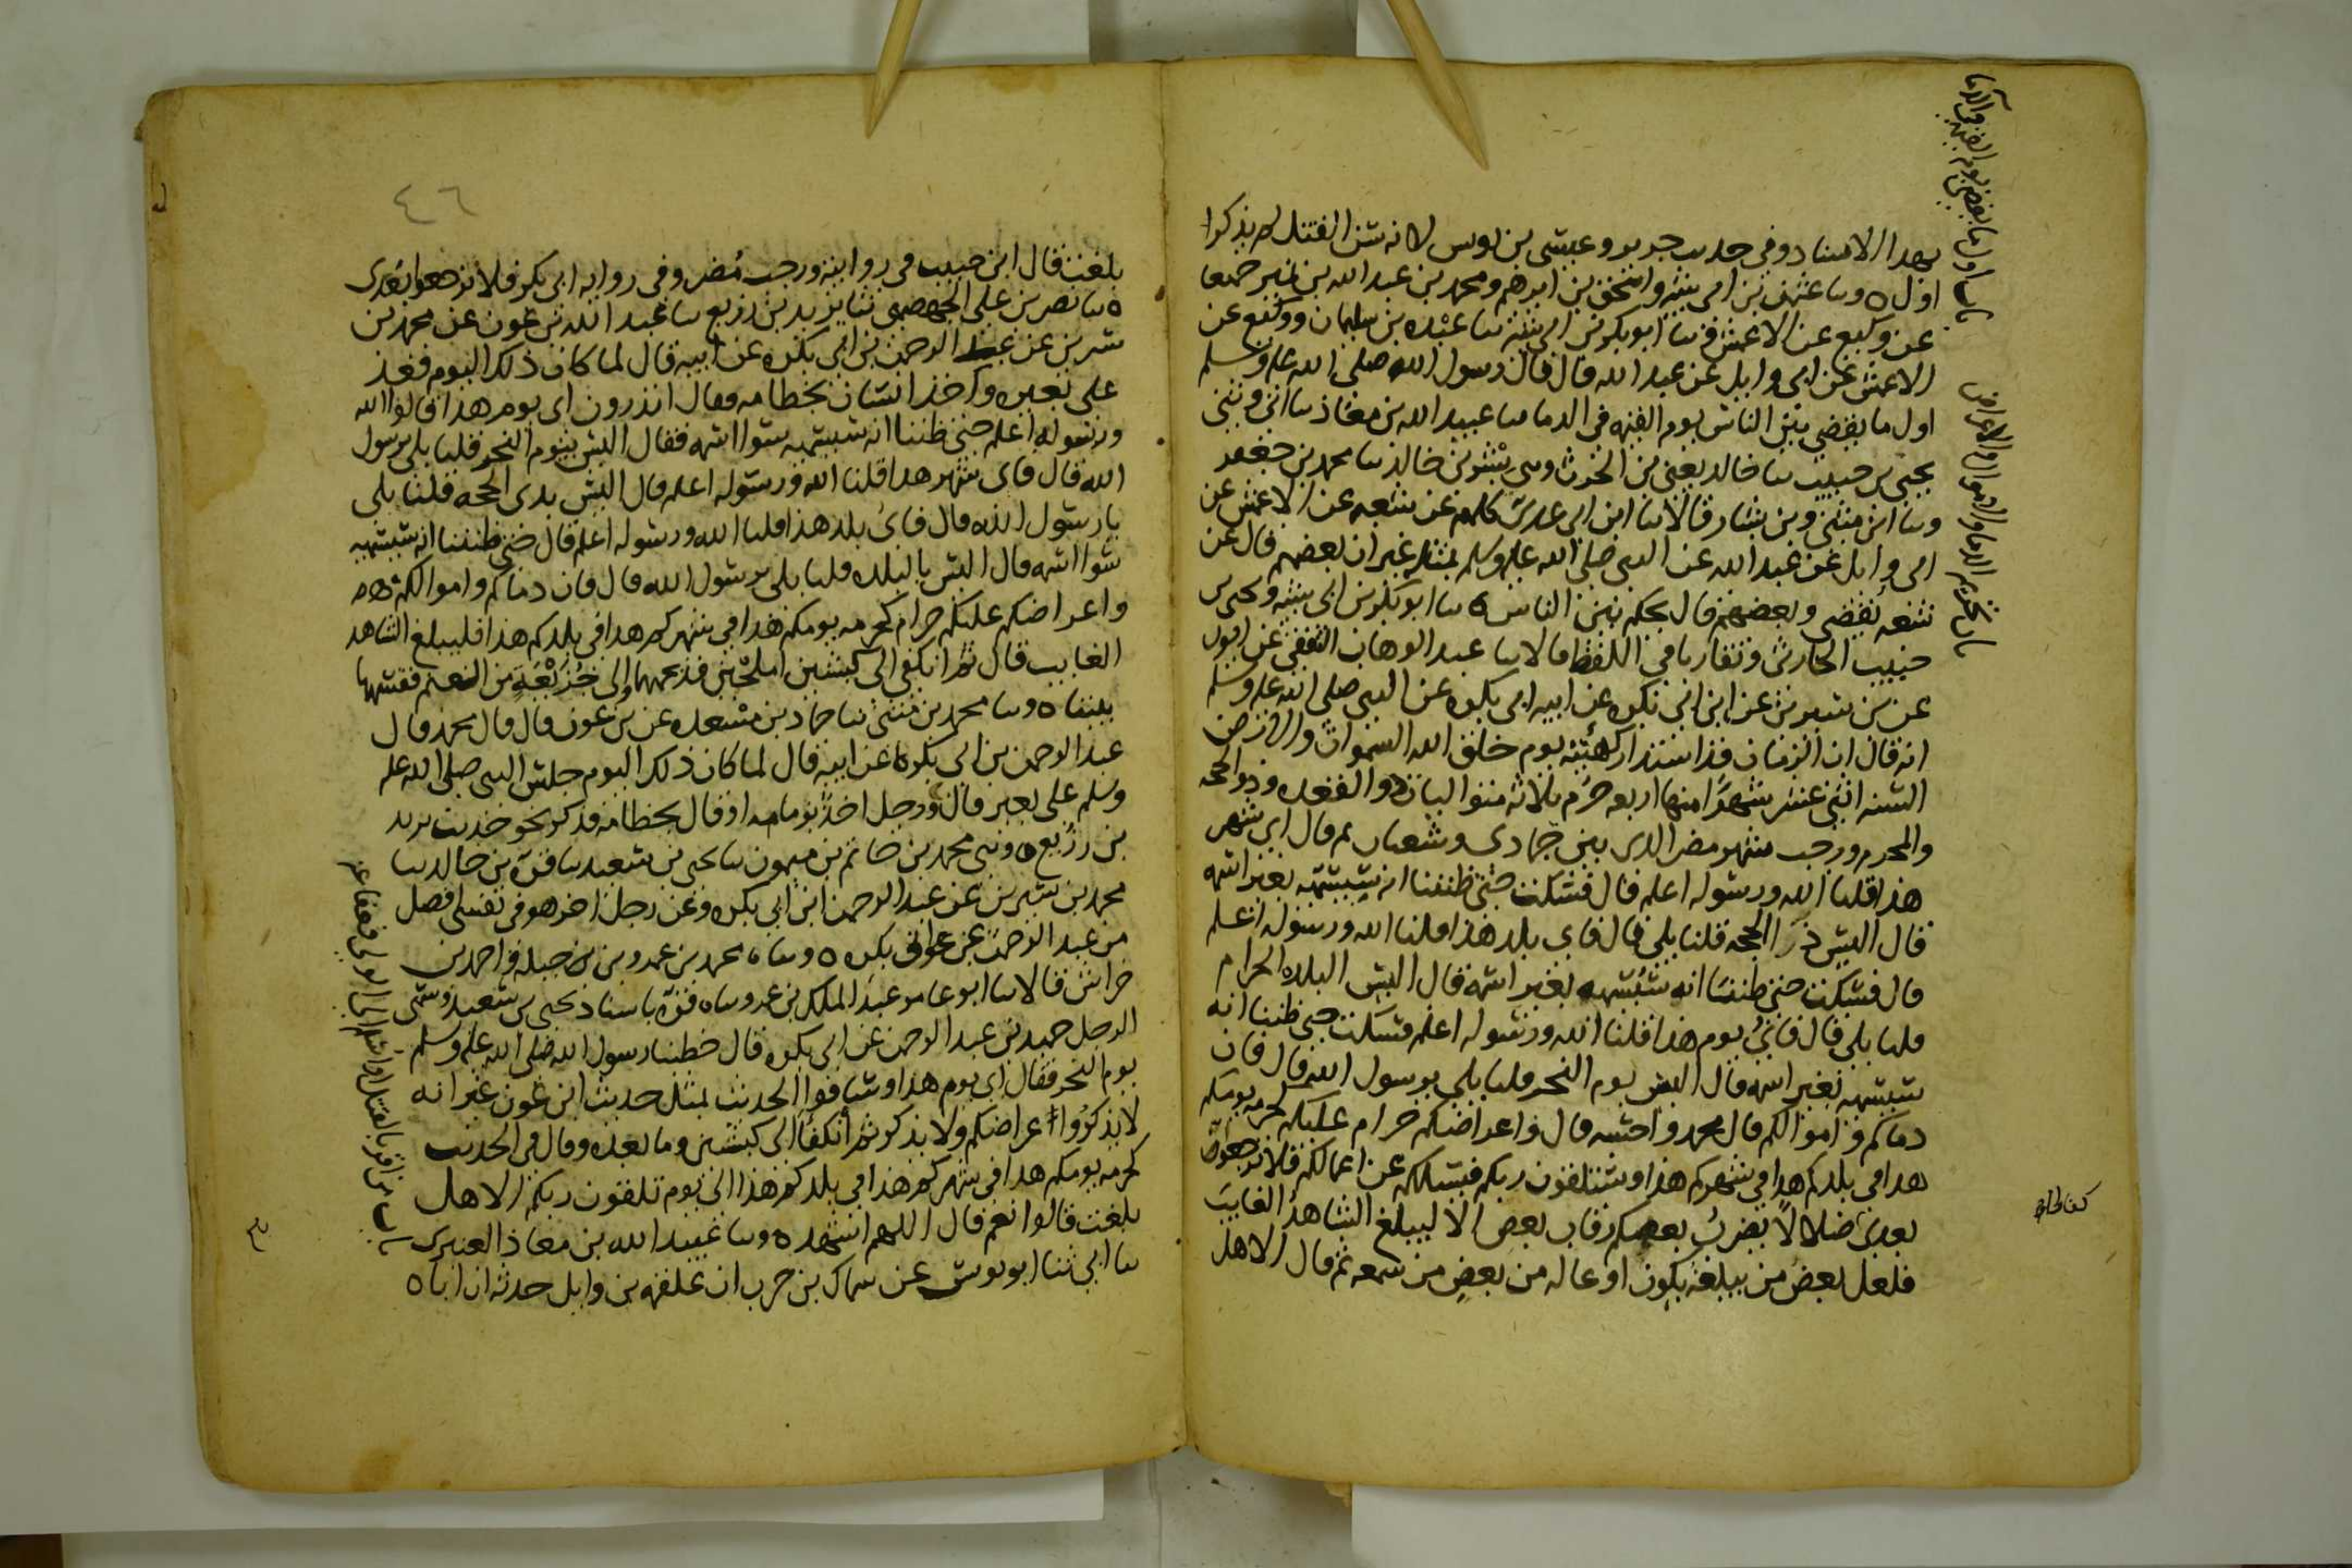 بهدا الاسناد وفي حديث جرير وعيسى بن يونس لانه سن القتل لم يذكرا
اول ٥ وسا عثمن بن ابي شيبه واسحق بن ابرهيم ومحمد بن عبد الله بن نمير جميعا
عن وكيع عن الاعمش ح وسا ابو بكر بن ابي شيبه سا عبده بن سليمان ووكيع عن
الاعمش عن ابي وايل عن عبد الله قال قال رسول الله صلى الله عليه وسلم
اول ما يقضي بين الناس يوم القيمه في الدما سا عبيد الله بن معاذ سا ابي وثني
يحيى بن حبيب سا خالد يعني بن الحرث وثني بشر بن خالد سا محمد بن جعفر
وسا ابن مثنى وبن بشار قالا سا ابن ابي عدي كلهم عن شعبه عن الاعمش عن
ابي وايل عن عبد الله عن النبي صلى الله عليه وسلم بمثله غير ان بعضهم قال عن
شعبه يقضي وبعضهم قال يحكم بين الناس ٥ سا ابو بكر بن ابي شيبه ويحيى بن
حبيب الحارثي وتقاربا في اللفظ قالا سا عبد الوهاب الثقفي عن ايوب
عن بن سيرين عن ابن ابي بكره عن ابيه ابي بكره عن النبي صلى الله عليه وسلم
انه قال ان الزمان قد استدار كهيئته يوم خلق الله السموات والارض
السنه اثني عشر شهرا منها اربعه حرم ثلاثه متواليات ذو القعده وذو الحجه
والمحرم ورجب شهر مضر الذي بين جمادى وشعبان ثم قال اي شهر
هذا قلنا الله ورسوله اعلم قال فسكت حتى ظننا انه سيسميه بغير اسمه
قال اليس ذا الحجه قلنا بلى قال فاي بلد هذا قلنا الله ورسوله اعلم
قال فسكت حتى ظننا انه سيسميه بغير اسمه قال اليس البلده الحرام
قلنا بلى قال فاي يوم هذا قلنا الله ورسوله اعلم فسكت حتى ظننا انه
سيسميه بغير اسمه قال اليس يوم النحر قلنا بلى يرسول الله قال فان
دماكم واموالكم قال محمد واحسبه قال واعراضكم حرام عليكم كحرمه يومكم
هدا في بلدكم هدا في شهركم هذا وستلقون ربكم فيسئلكم عن اعمالكم فلا ترجعوا
بعدي ضلالا يضرب بعضكم رقاب بعض الا ليبلغ الشاهد الغايب
فلعل بعض من يبلغه يكون اوعا له من بعض من سمعه ثم قال الا هل
باب اول ما يقضى يوم القيمه في الدما
باب تحريم الدما والاموال والاعراض
٤٦
بلغت قال ابن حبيب في روايته ورجب مضر وفي روايه ابي بكر فلا ترجعوا بعدي
٥ سا نصر بن علي الجهضمي ثنا يزيد بن زريع سا عبد الله بن عون عن محمد بن
سيرين عن عبد الرحمن بن ابي بكره عن ابيه قال لما كان ذلك اليوم قعد
على بعيره واخذ انسان بخطامه فقال اتدرون اي يوم هدا قالوا الله
ورسوله اعلم حتى ظننا انه سيسميه سوا اسمه فقال اليس بيوم النحر قلنا بلى يرسول
الله قال فاي شهر هدا قلنا الله ورسوله اعلم قال اليس بذي الحجه قلنا بلى
يا رسول الله قال فاي بلد هذا قلنا الله ورسوله اعلم قال حتى ظننا انه سيسميه
سوا اسمه قال اليس بالبلده قلنا بلى يرسول الله قال فان دماكم واموالكم
واعراضكم عليكم حرام كحرمه يومكم هذا في شهركم هدا في بلدكم هذا فليبلغ الشاهد
الغايب قال ثم انكفى الى كبشين املحين فذبحهما والى جزيعة من الغنم فقسمها
بيننا ٥ وسا محمد بن مثنى سا حماد بن مسعده عن بن عون قال قال محمد قال
عبد الرحمن بن ابي بكره عن ابيه قال لما كان ذلك اليوم جلس النبي صلى الله عليه
وسلم على بعير قال ورجل اخذ بزمامه او قال بخطامه فذكر نحو حديث يزيد
بن زريع ٥ وثني محمد بن حاتم بن ميمون سا يحيى بن سعيد سا قره بن خالد سا
محمد بن سيرين عن عبد الرحمن ابن ابي بكره وعن رجل اخر هو في نفسي افضل
من عبد الرحمن عن ابي بكره ٥ وسا محمد بن عمرو بن جبله واحمد بن
خراش قالا سا ابو عامر عبد الملك بن عمرو سا قره باسناد يحيى بن سعيد وسمى
الرجل حميد بن عبد الرحمن عن ابي بكره قال خطبنا رسول الله صلى الله عليه وسلم
يوم النحر فقال اي يوم هذا وساقوا الحديث بمثل حديث ابن عون غير انه
لا يذكروا اعراضكم ولا يذكر ثم انكفا الى كبشين وما بعده وقال في الحديث
كحرمه يومكم هدا في شهركم هذا في بلدكم هذا الى يوم تلقون ربكم الا هل
بلغت قالوا نعم قال اللهم اشهد ٥ وسا عبيد الله بن معاذ العنبري
سا ابي ثنا ابو يونس عن سماك بن حرب ان علقمه بن وايل حدثه ان اباه
باب من اقر بالقتل